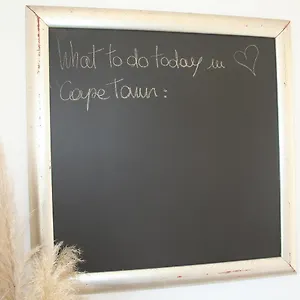 What to do today in ♡
Cape Town: